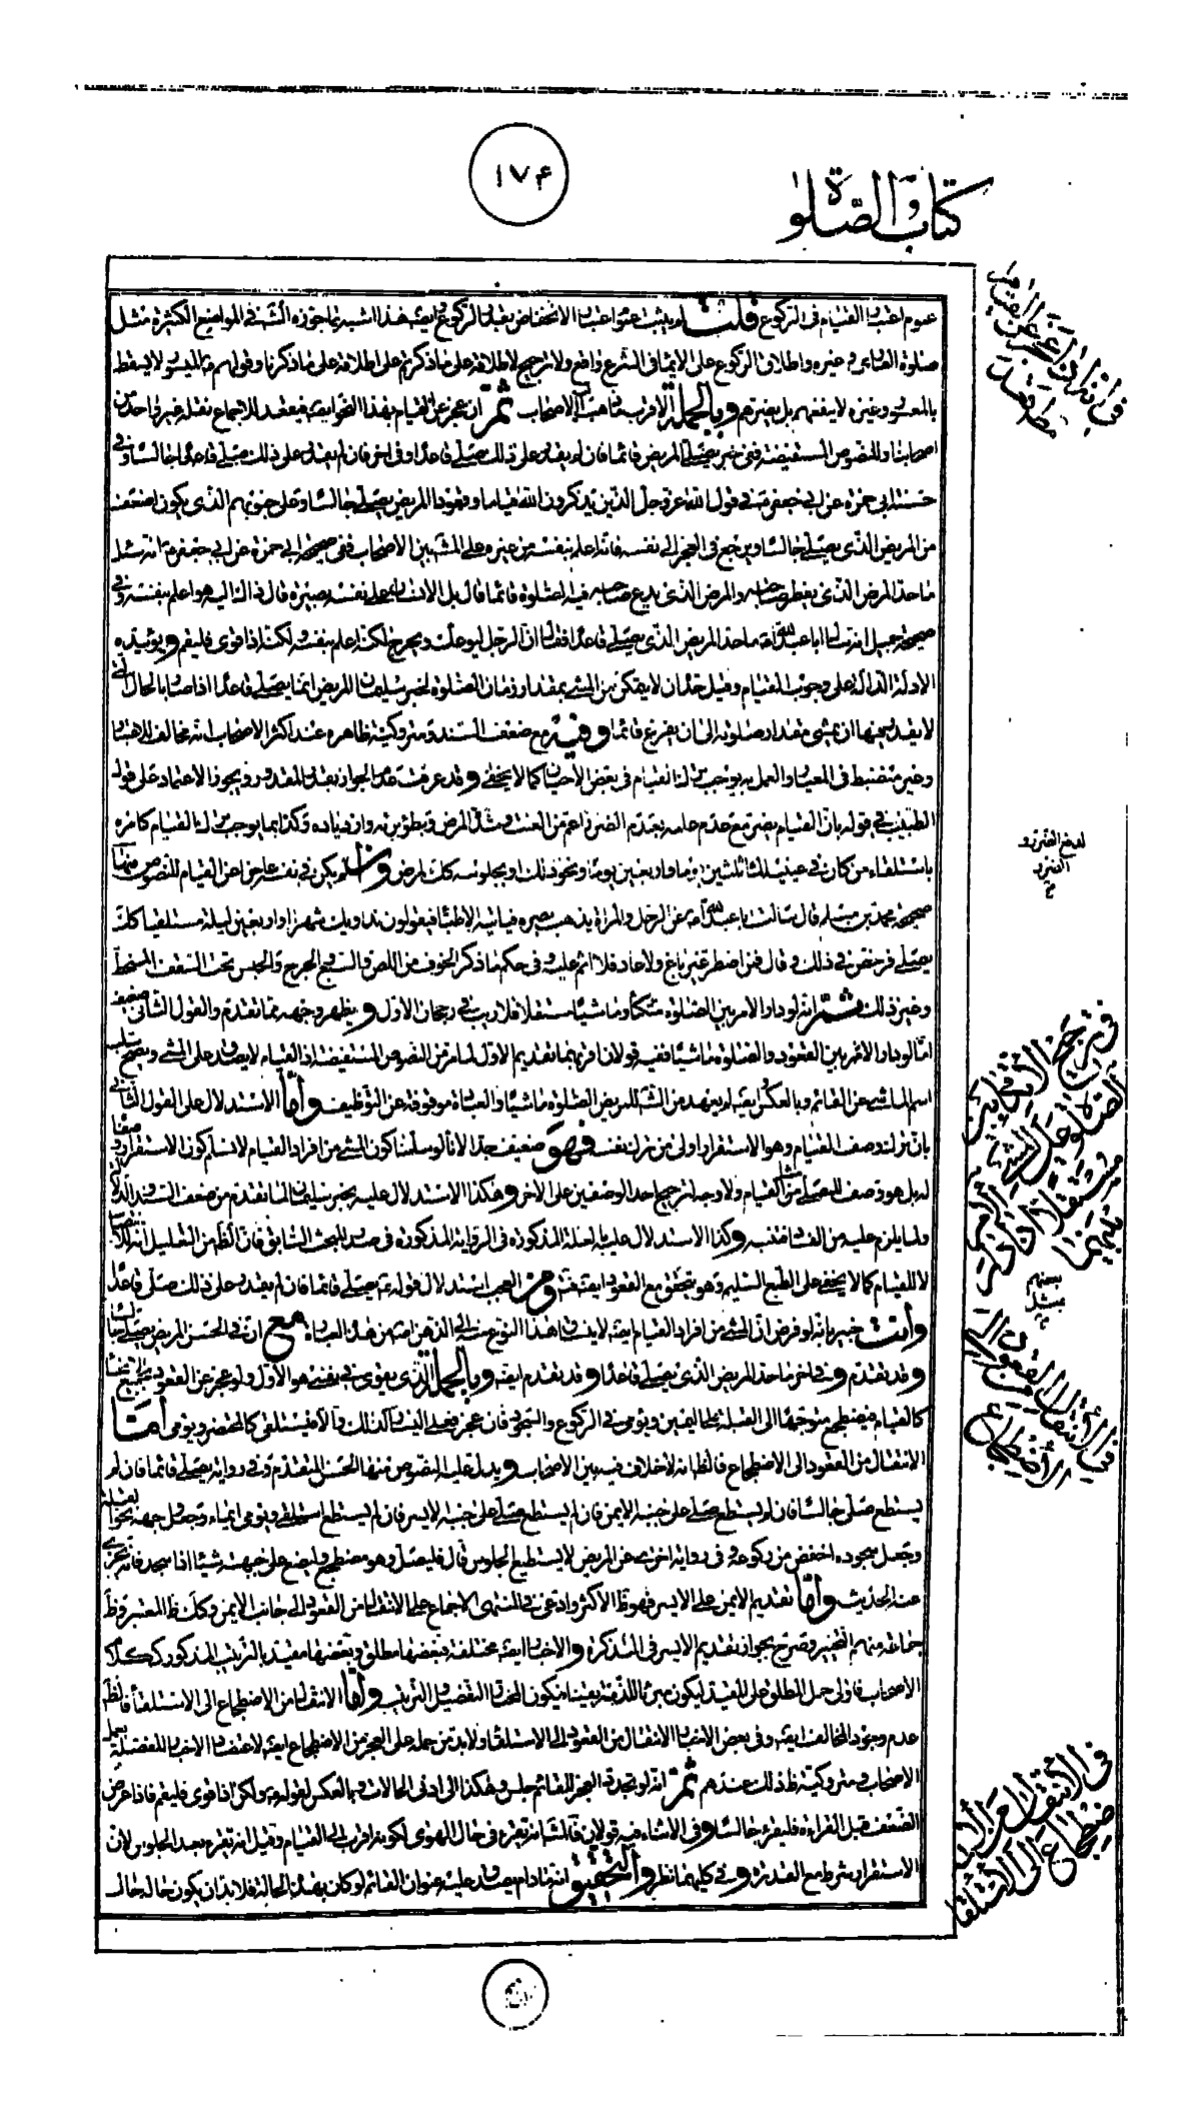 ١٧۴
كتاب الصلوة
عموم اعتبار القيام فى الركوع قلت لم يثبت عموم اعتبار الانخفاض بعد الركوع ايضا هذا الشبه بما جوزه الش فى المواضع الكثيرة مثل
صلوة العارى وغيره واطلاق الركوع على الايماء فى الشرع واقع ولا ترجيح لاطلاقه على ما ذكرتم على اطلاقه على ما ذكرنا وقولهم الميسور لا يسقط
بالمعسور وغيره لا ينفعهم بل يضرهم وبالجملة الاقرب مذهب الاصحاب ثم ان عجز عن القيام بهذا النحو ايضا فيقعد للاجماع نقله غير واحد من
اصحابنا وللنصوص المستفيضة ففى خبر يصلى المريض قائما فان لم يقدر على ذلك صلى قاعدا وفى اخر فان لم يقدر على ذلك صلى قاعدا جالسا وفى
حسنة ابى حمزة عن ابى جعفر فى قول الله عز وجل الذين يذكرون الله قياما وقعودا المريض يصلى جالسا وعلى جنوبهم الذى يكون اضعف
من المريض الذى يصلى جالسا ويرجع فى العجز الى نفسه فانه اعلم بنفسه من غيره على المشهور بين الاصحاب ففى صحيحة ابى حمزة عن ابى جعفر انه سئل
ما حد المرض الذى يفطر صاحبه والمرض الذى يدع صاحبه فيه الصلوة قائما قال بل الانسان على نفسه بصيرة قال ذاك اليه هو اعلم بنفسه وفى
صحيحة جميل انه سئل ابا عبد الله ما حد المريض الذى يصلى قاعدا فقال ان الرجل ليوعك ويحرج لكنه اعلم بنفسه ولكنه اذا قوى فليقم ويؤيده
الادلة الدالة على وجوب القيام وقيل حده ان لا يتمكن من المشى بمقدار زمان الصلوة لخبر سليمان المريض انما يصلى قاعدا اذا صار بالحال التى
لا يقدر فيها ان يمشى مقدار صلوته الى ان يفرغ قائما وفيه مع ضعف السند ومتروكيته ظاهره عند اكثر الاصحاب انه مخالف للاعتبار
وغير منضبط فى المعيار والعمل به يوجب ترك القيام فى بعض الاحيان كما لا يخفى وقد عرفت عدم الجواز بعد المقدور ويجوز الاعتماد على قول
الطبيب فى قوله بان القيام يضر مع عدم علمه بعدم الضرر اعم من العنت وشدة المرض وبطؤ برئه وازدياده وكذا بما يوجب ترك القيام كامره
باستلقاء من كان فى عينيه ثلثين يوما او اربعين يوما ونحو ذلك او بجلوسه كك لمرض وان لم يكن فى نفسه عاجزا عن القيام للنصوص منها
صحيحة محمد بن مسلم قال سالت ابا عبد الله عن الرجل والمراة يذهب بصره فياتيه الاطباء فيقولون نداويك شهرا او اربعين ليلة مستلقيا كك
يصلى فرخص فى ذلك وقال فمن اضطر غير باغ ولا عاد فلا اثم عليه وفى حكم ما ذكر الخوف من اللص والسبع الجرح والحبس تحت السقف المنحط
وغير ذلك ثم انه لو دار الامر بين الصلوة متكأ وماشيا مستقلا فلا ريب فى رجحان الاول ويظهر وجهه مما تقدم والقول الثانى ضعيف
اما لو دار الامر بين القعود والصلوة ماشيا ففيه قولان اقربهما تقديم الاول لما مر من النصوص المستفيضة اذ القيام لا يصدق على المشى ويصح سلب
اسم الماشى عن القائم وبالعكس ايضا لم يعهد من الش للمريض الصلوة ماشيا والعبادة موقوفة عن التوظيف واما الاستدلال على القول الثانى
بان ترك وصف القيام وهو الاستقرار اولى من ترك نفسه فهو ضعيف جدا لانا لو سلمنا كون المشى من افراد القيام لا نسلم كون الاستقرار وصفا
له بل هو وصف للمصلى كالقيام ولا وجه لترجيح احد الوصفين على الاخر وهكذا الاستدلال عليه بخبر سليمان لما تقدم من ضعف السند والدلالة
ولما يلزم عليه من الفساد فتنبه وكذا الاستدلال عليه بالعلة المذكورة فى الرواية المذكورة فى صدر المبحث السابق فان الظهر من التعليل انه للانتصاب
لا للقيام كما لا يخفى على الطبع السليم وهو يتحقق مع القعود ايضا فتنبه ومن العجب استدلال قوله يصلى قائما فان لم يقدر على ذلك صلى قاعدا
وانت خبير بانه لو فرض ان المشى من افراد القيام ايضا لا ينساق هذا النوع منه الى الذهن اصلا من هذه العبارة مع ان فى الحسن المريض يصلى جالسا
وقد تقدم وفى اخر ما حد المريض الذى يصلى قاعدا وقد تقدم ايضا وبالجملة الذى يقوى فى نفسى هو الاول ولو عجز عن القعود بجميع انحائه
كالقيام فيضطجع متوجها الى القبلة على اليمين ويومى فى الركوع والسجود فان عجز فعلى اليسار كذلك والا فيستلقى كالمحتضر ويومى اما
الانتقال من القعود الى الاضطجاع فالظ انه لا خلاف فيه بين الاصحاب ويدل عليه النصوص منها الحسن المتقدم وفى رواية يصلى قائما فان لم
يستطع صلى جالسا فان لم يستطع صلى على جنبه الايمن فان لم يستطع صلى على جنبه الايسر فان لم يستطع استلقى ويومى ايماء وجعل وجهه نحو القبلة
وجعل سجوده اخفض من ركوعه وفى رواية اخرى عن المريض لا يستطيع الجلوس قال فليصل وهو مضطجع وليضع على جبهته شيئا اذا سجد فانه يجزى
عنه الحديث واما تقديم الايمن على الايسر فهو ظ الاكثر وادعى فى المنتهى الاجماع على الانتقال من القعود الى جانب الايمن وكك ظ المعتبر وظ
جماعة منهم التخيير وصرح بجواز تقديم الايسر فى التذكرة والاخبار ايضا مختلفة فبعضها مطلق وبعضها مقيد بالترتيب المذكور ككلام
الاصحاب فاولى حمل المطلق على المقيد ليكون مبرئا للذمة يقينا فيكون المختار التفصيل والترتيب واما الانتقال من الاضطجاع الى الاستلقاء فالظ
عدم وجود المخالف ايضا وفى بعض الاخبار الانتقال من القعود الى الاستلقاء ولا بد من حمله على العجز من الاضطجاع ايضا لاعتضاد الاخبار المفصلة بعمل
الاصحاب ومتروكيته ظ ذلك عندهم ثم انه لو تجدد العجز للقائم جلس وهكذا الى ادنى الحالات وبالعكس لقوله ولكن اذا قوى فليقم فاذا عرض
الضعف قبل القراءة فليقرء جالسا وفى الاثناء فيه قولان فالمشهور انه يقرء فى حال الهوى لكونه اقرب الى القيام وقيل انه يقرء بعد الجلوس لان
الاستقرار شرط مع القدرة وفى كليهما نظر والتحقيق انه ما دام يصدق عليه عنوان القائم لو كان بهذه الحالة فلا بد ان يكون حاله حال
لدفع الضرر و
الضرر
فى ترجيح الاتكاء فى
الصلوة على المشى
مستقلا
فى الانتقال من القعود الى
الاضطجاع
فى الانتقال عن الا
ضطجاع الى الاستلقاء